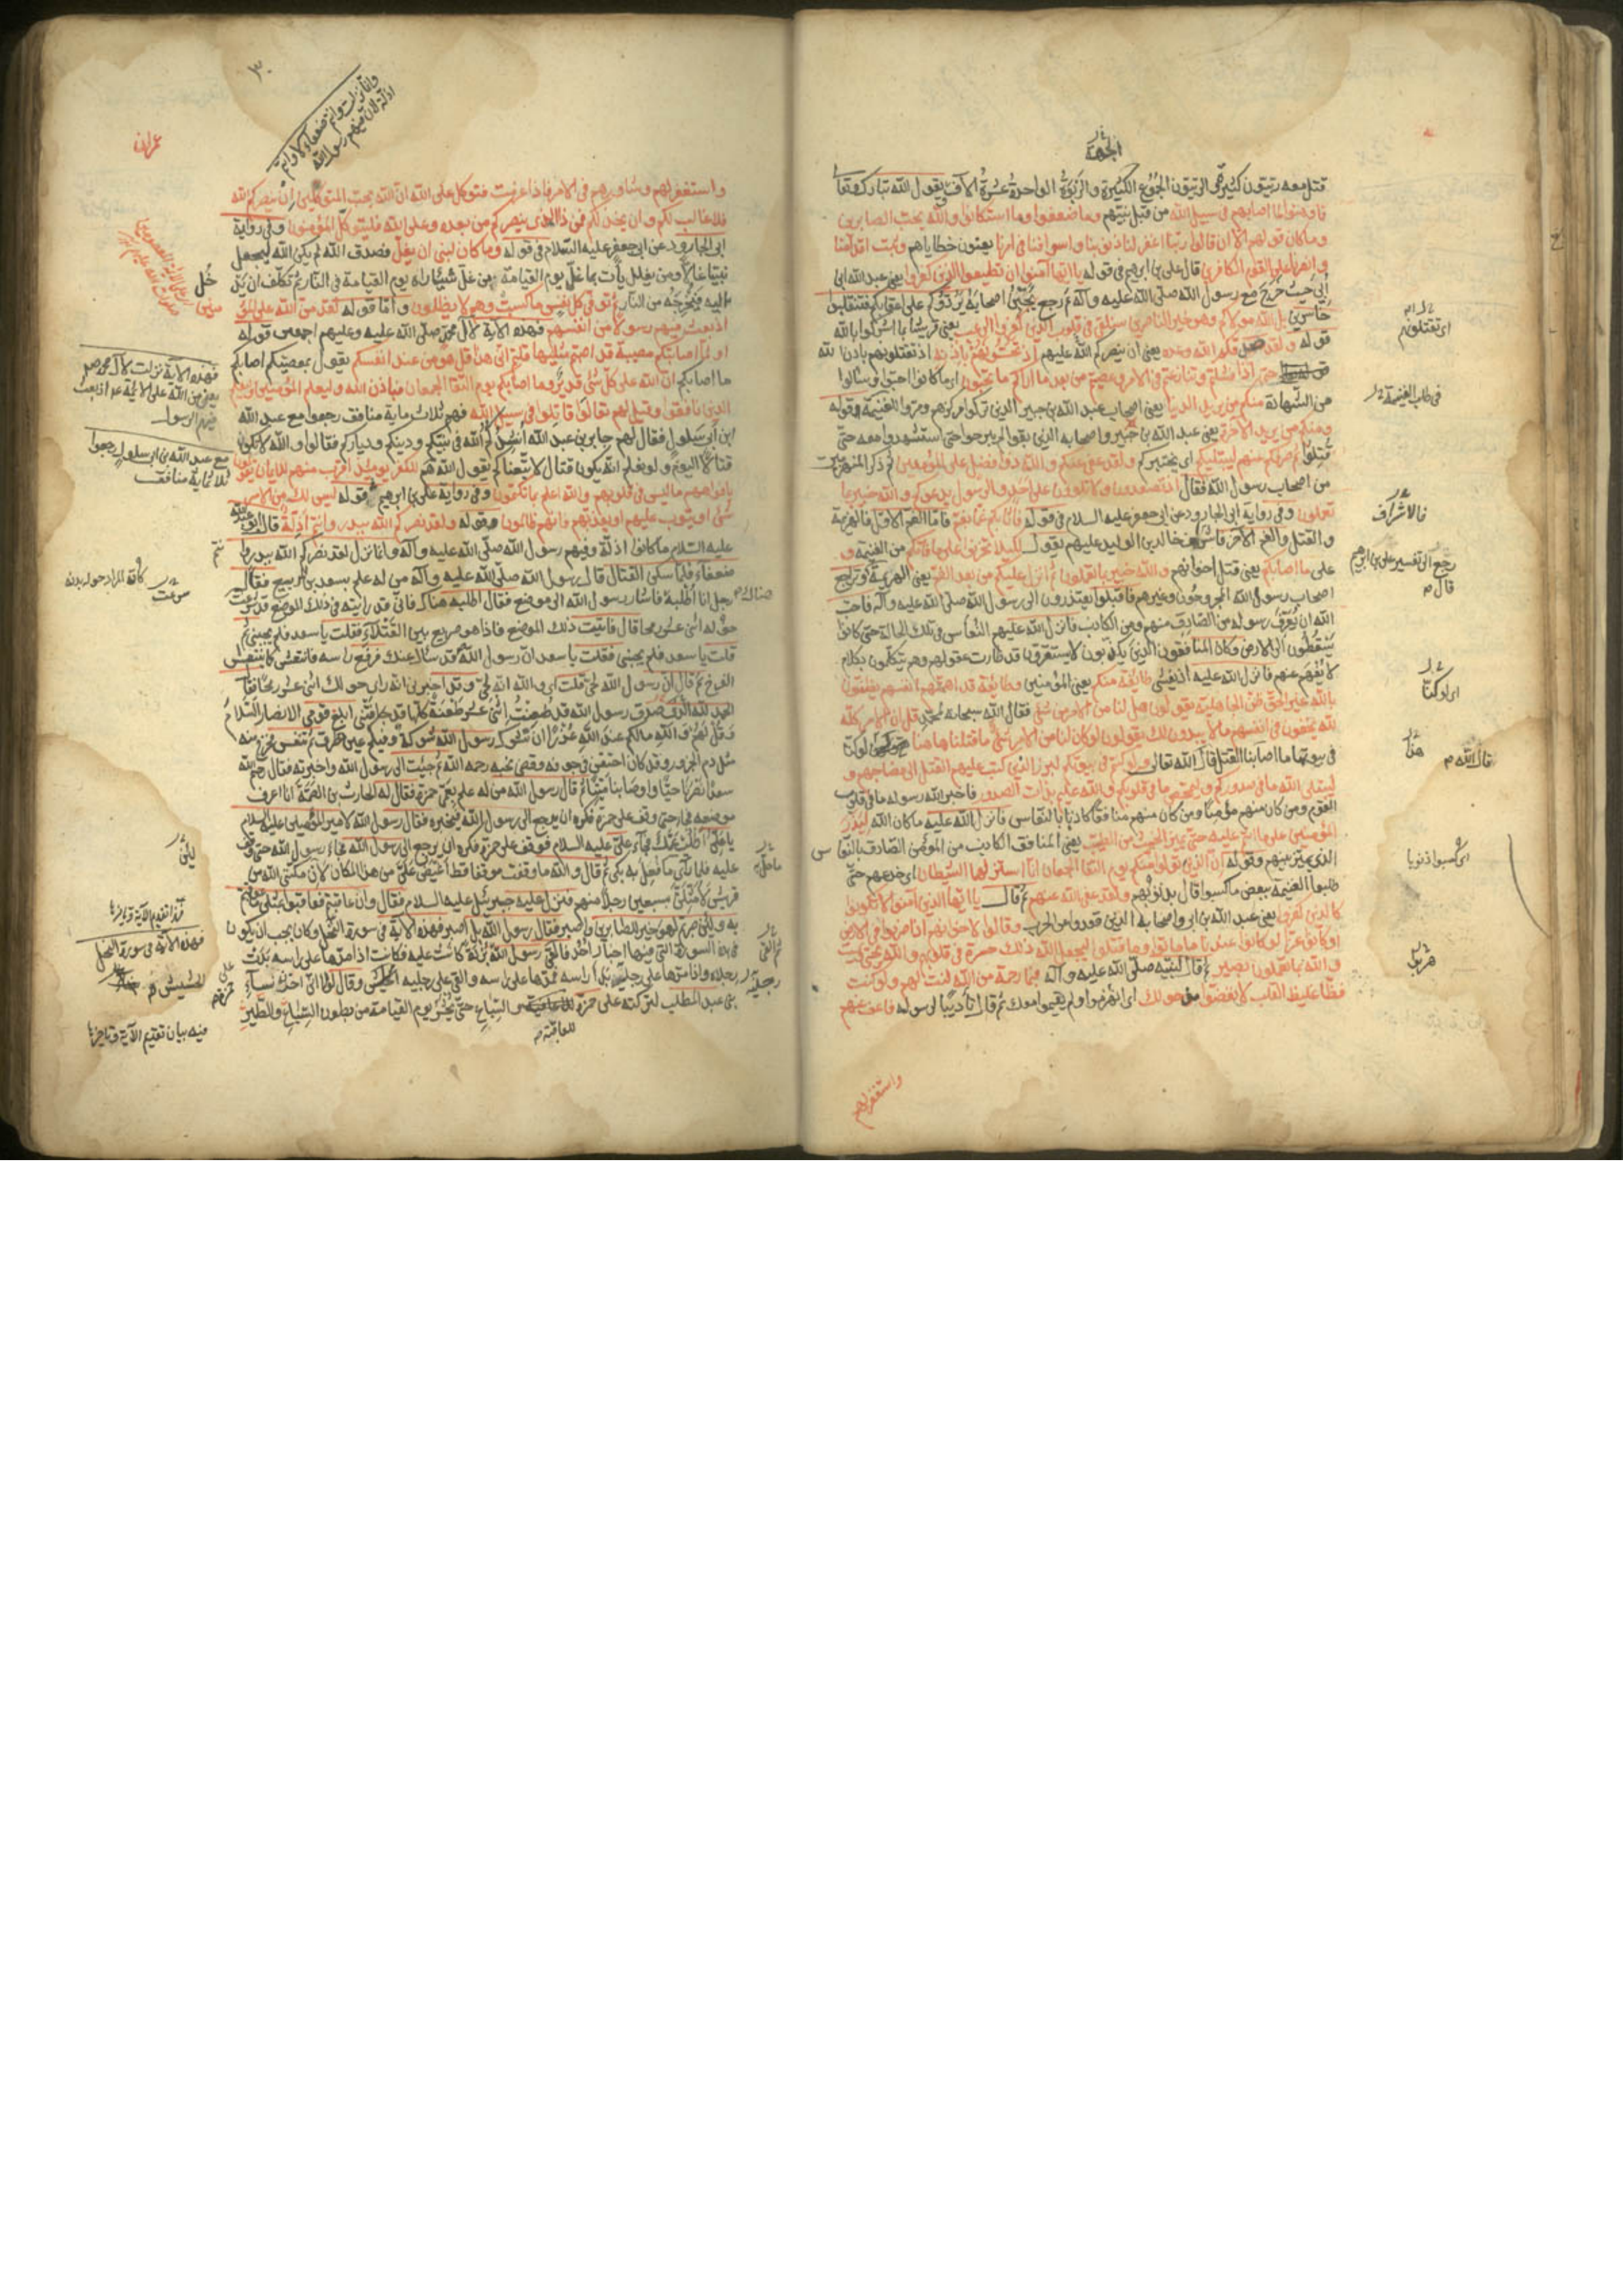 الجمة
قتل معه ربيون كثير قال الربيون الجموع الكثيرة والربوة الواحدة عشرة آلاف يقول الله تبارك وتعالى
فما وهنوا لما اصابهم في سبيل الله من قتل نبيهم وما ضعفوا وما استكانوا والله يحب الصابرين
وما كان قولهم الا ان قالوا ربنا اغفر لنا ذنوبنا واسرافنا في امرنا يعنون خطاياهم وثبت اقدامنا
وانصرنا على القوم الكافرين قال علي بن ابراهيم في قوله يا ايها الذين آمنوا ان تطيعوا الذين كفروا يعني عبد الله بن ابي
حيث خرج مع رسول الله صلى الله عليه وآله ثم رجع يجبن اصحابه يردوكم على اعقابكم فتنقلبوا
خاسرين بل الله مولاكم وهو خير الناصرين سنلقي في قلوب الذين كفروا الرعب يعني قريشا بما اشركوا بالله
قوله ولقد صدقكم الله وعده يعني ان ينصركم الله عليهم اذ تحسونهم باذنه اذ تقتلونهم باذن الله
حتى اذا فشلتم وتنازعتم في الامر وعصيتم من بعد ما اراكم ما تحبون اي ما كانوا احبوا وسألوا
من الشهادة منكم من يريد الدنيا يعني اصحاب عبد الله بن جبير الذين تركوا مركزهم ومروا للغنيمة وقوله
ومنكم من يريد الاخرة يعني عبد الله بن جبير واصحابه الذين بقوا لم يبرحوا حتى استشهدوا معه حتى
قتلوا ثم صرفكم عنهم ليبتليكم اي يختبركم ولقد عفى عنكم والله ذو فضل على المؤمنين ثم ذكر المنهزمين
من اصحاب رسول الله فقال اذ تصعدون ولا تلوون على احد والرسول يدعوكم والله خبير بما
تعملون وفي رواية ابي الجارود عن ابي جعفر عليه السلام في قوله فاثابكم غما بغم فاما الغم الاول فالهزيمة
والقتل والغم الآخر فاشراف خالد بن الوليد عليهم يقول لكيلا تحزنوا على ما فاتكم من الغنيمة و
على ما اصابكم يعني قتل اخوانهم والله خبير بما تعملون ثم انزل عليكم من بعد الغم يعني الهزيمة وتراجع
اصحاب رسول الله المجروحون وغيرهم فاقبلوا يعتذرون الى رسول الله صلى الله عليه وآله فاحب
الله ان يعرف رسوله من الصادق منهم ومن الكاذب فانزل الله عليهم النعاس في تلك الحالة حتى كانوا
يسقطون الى الارض وكان المنافقون الذين يكذبون لا يستقرون قد طارت عقولهم وهم يتكلمون بكلام
لا يفهم عنهم فانزل الله عليه يغشى طائفة منكم يعني المؤمنين وطائفة قد اهمتهم انفسهم يظنون
بالله غير الحق ظن الجاهلية يقولون هل لنا من الامر من شيء فقال الله سبحانه لمحمد قل ان الامر كله
لله يخفون في انفسهم ما لا يبدون لك يقولون لو كان لنا من الامر شيء ما قتلنا ها هنا لو كنا
في بيوتنا ما اصابنا القتل قال الله تعالى لو كنتم في بيوتكم لبرز الذين كتب عليهم القتل الى مضاجعهم و
ليبتلي الله ما في صدوركم وليمحص ما في قلوبكم والله عليم بذات الصدور فاخبر الله رسوله ما في قلوب
القوم ومن كان منهم مؤمنا ومن كان منهم منافقا كاذبا بالنعاس فانزل الله عليه ما كان الله ليذر
المؤمنين على ما انتم عليه حتى يميز الخبيث من الطيب يعني المنافق الكاذب من المؤمن الصادق بالنعاس
الذي ميز بينهم وقوله ان الذين تولوا منكم يوم التقا الجمعان انما استزلهم الشيطان اي خدعهم حتى
طلبوا الغنيمة ببعض ما كسبوا قال بذنوبهم ولقد عفى الله عنهم ثم قال يا ايها الذين آمنوا لا تكونوا
كالذين كفروا يعني عبد الله بن ابي واصحابه الذين قعدوا عن الحرب وقالوا لاخوانهم اذا ضربوا في الارض
او كانوا غزا لو كانوا عندنا ما ماتوا وما قتلوا ليجعل الله ذلك حسرة في قلوبهم والله يحيي ويميت
والله بما تعملون بصير ثم قال لنبيه صلى الله عليه وآله فبما رحمة من الله لنت لهم ولو كنت
فظا غليظ القلب لانفضوا من حولك اي انهزموا ولم يقيموا معك ثم قال تأديبا لرسوله فاعف عنهم
واستغفر لهم
اي تقتلونهم
في طلب الغنيمة
فالاشراف
رجع الى تفسير علي بن ابرهيم
قال
اي لو كنا
هنا
قال الله
اي كسبوا ذنوبا
٣٠
عمران
وانما نزلت وانتم ضعفاء كانوا
اذلة لان منهم رسول الله
واستغفر لهم وشاورهم في الامر فاذا عزمت فتوكل على الله ان الله يحب المتوكلين ان ينصركم الله
فلا غالب لكم وان يخذلكم فمن ذا الذي ينصركم من بعده وعلى الله فليتوكل المؤمنون وفي رواية
ابي الجارود عن ابي جعفر عليه السلام في قوله وما كان لنبي ان يغل فصدق الله لم يكن الله ليجعل
نبيا غالا ومن يغلل يأت بما غل يوم القيامة من غل شيئا رآه يوم القيامة في النار ثم يكلف ان يدخل
اليه فيخرجه من النار ثم توفى كل نفس ما كسبت وهم لا يظلمون واما قوله لقد من الله على المؤمنين
اذ بعث فيهم رسولا من انفسهم فهذه الاية لآل محمد صلى الله عليه وعليهم اجمعين قوله
اولما اصابتكم مصيبة قد اصبتم مثليها قلتم انى هذا قل هو من عند انفسكم يقول بمعصيتكم اصابكم
ما اصابكم ان الله على كل شيء قدير وما اصابكم يوم التقا الجمعان فباذن الله وليعلم المؤمنين وليعلم
الذين نافقوا وقيل لهم تعالوا قاتلوا في سبيل الله فهم ثلاث مائة منافق رجعوا مع عبد الله
ابن ابي سلول فقال لهم جابر بن عبد الله انشدكم الله في نبيكم ودينكم ودياركم فقالوا والله لا يكون
قتالا اليوم ولو نعلم انه يكون قتال لاتبعناكم يقول الله هم للكفر يومئذ اقرب منهم للايمان يقولون
بافواههم ما ليس في قلوبهم والله اعلم بما يكتمون وفي رواية علي بن ابراهيم قوله ليس لك من الامر
شيء او يتوب عليهم او يعذبهم فانهم ظالمون وقوله ولقد نصركم الله ببدر وانتم اذلة قال ابو عبد الله
عليه السلام ما كانوا اذلة وفيهم رسول الله صلى الله عليه وآله وانما نزل لقد نصركم الله ببدر وانتم
ضعفاء فلما سكن القتال قال رسول الله صلى الله عليه وآله من له علم بسعد بن الربيع فقال
رجل انا اطلبه فاشار رسول الله الى موضع فقال اطلبه هناك فاني قد رأيته في ذلك الموضع قد شرعت
حوله اثنى عشر رمحا قال فاتيت ذلك الموضع فاذا هو صريع بين القتلاء فقلت يا سعد فلم يجبني ثم
قلت يا سعد فلم يجبني فقلت يا سعد ان رسول الله قد سأل عنك فرفع رأسه فانتعش كما ينتعش
الفرخ ثم قال ان رسول الله لحي قلت اي والله انه لحي وقد اخبرني انه راى حولك اثنى عشر رمحا فقال
الحمد لله صدق رسول الله قد طعنت اثنى عشر طعنة كلها قد جافتني ابلغ قومي الانصار السلام
وقل لهم والله ما لكم عند الله عذر ان تشوك رسول الله شوكة وفيكم عين تطرف ثم تنفس فخرج منه
مثل دم الجزور وقد كان احتقن في جوفه وقضى نحبه رحمه الله ثم جئت الى رسول الله واخبرته فقال رحم الله
سعدا نصرنا حيا واوصا بنا ميتا ثم قال رسول الله من له علم بعمي حمزة فقال له الحارث بن الصمة انا اعرف
موضعه فجاء حتى وقف على حمزة فكره ان يرجع الى رسول الله فيخبره فقال رسول الله لامير المؤمنين عليه السلام
يا علي اطلب عمك فجاء علي عليه السلام فوقف على حمزة فكره ان يرجع الى رسول الله فجاء رسول الله حتى وقف
عليه فلما رأى ما فعل به بكى ثم قال والله ما وقفت موقفا قط اغيظ علي من هذا المكان لان مكنني الله من
قريش لامثلن بسبعين رجلا منهم فنزل عليه جبرئيل عليه السلام فقال وان عاقبتم فعاقبوا بمثل ما عوقبتم
به ولئن صبرتم لهو خير للصابرين واصبر فقال رسول الله بل اصبر فهذه الآية في سورة النحل وكان يجب ان يكون
في هذه السورة التي فيها اخبار احد فالقى رسول الله بردة كانت عليه فكانت اذا مدها على راسه بدت
رجلاه واذا مدها على رجليه بدا راسه فمدها على راسه والقى على رجليه الحشيش وقال لولا اني احذر نساء
بني عبد المطلب لتركته على حمزة للعافية والسباع حتى يحشر يوم القيامة من بطون السباع والطير
للعاقبة
فهذه الآية نزلت لآل محمد
يعني من الله على الائمة اذ بعث
فيهم الرسول
مع عبد الله بن ابي سلول رجعوا
ثلاثماية منافق
شرعت
كانه المراد حوله بدنه
هناك
فهذه الآية في سورة النحل
الحشيش
منه بيان تقديم الآية وتاخيرها
رجليه